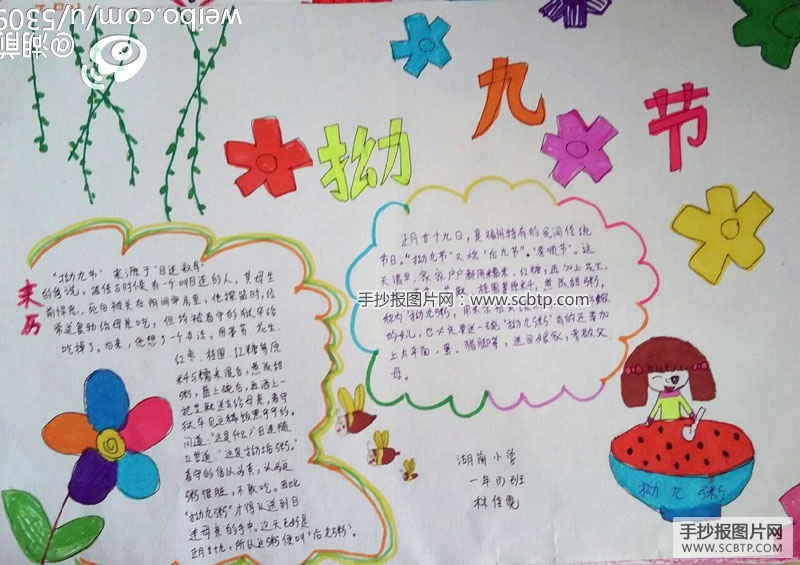 拗九节
来历
"拗九节" 来源于"目连救母"
的传说。据传古时候有一个叫目连的人，其母生
前悭吝，死后被关在阴间牢房里，他探监时，经
常送食物给母亲吃，但均被看守的狱卒给
吃掉了。后来，他想了一个办法，用荸荠、花生、
红枣、桂圆、红糖等原
料与糯米混合，熬成甜
粥，盖上碗后，再洒上一
把芝麻送去给母亲，看守
狱卒见这稀饭黑乎乎的，
问道："这是什么？"目连随
口答道："这是拗垢粥。"
看守的信以为真，认为这
粥很脏，不敢吃。因此
"拗九粥"才得以送到目
连母亲的手中。这天也就是
正月廿九，所以这粥便叫"后九粥"。
正月廿十九日，是福州特有的民间传统
节日。"拗九节"又称"后九节"、"孝顺节"。这
天清早，家家户户都用糯米、红糖，再加上花生、
称为"拗九粥"，用来祭祖
的女儿，也必定要送一碗"拗九粥"有的还要加
上太平面、蛋、猪脚等，送回娘家，孝敬父
母。
湖前小学
一年(1)班
林佳霓
拗九粥
手抄报图片网：www.scbtp.com
手抄报图片网
WWW.SCBTP.COM
@湖前
weibo.com/u/5309